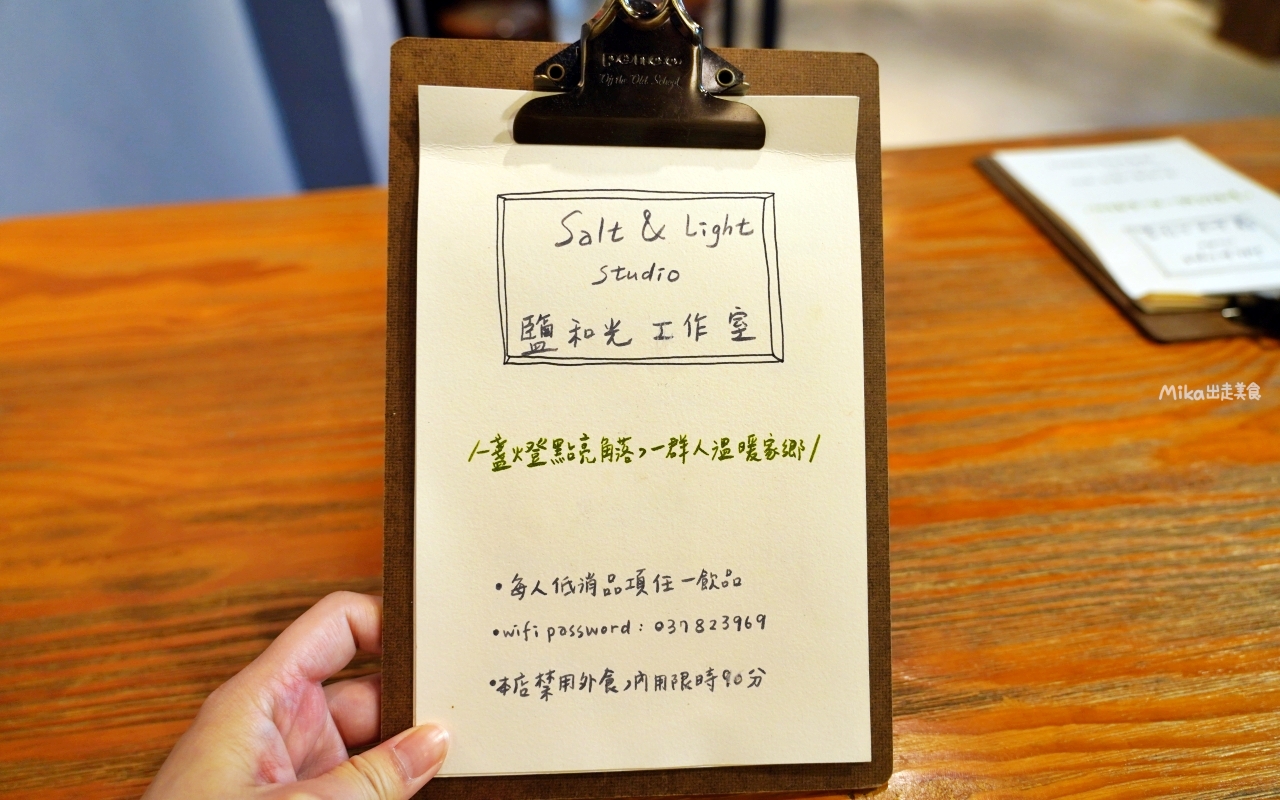 Off the Old School
Salt & Light
studio
鹽和光 工作室
/一盞燈點亮角落,一群人溫暖家鄉/
•每人低消品項任一飲品
•wifi password: 037823969
•本店禁用外食,內用限時90分
Mika出走美食